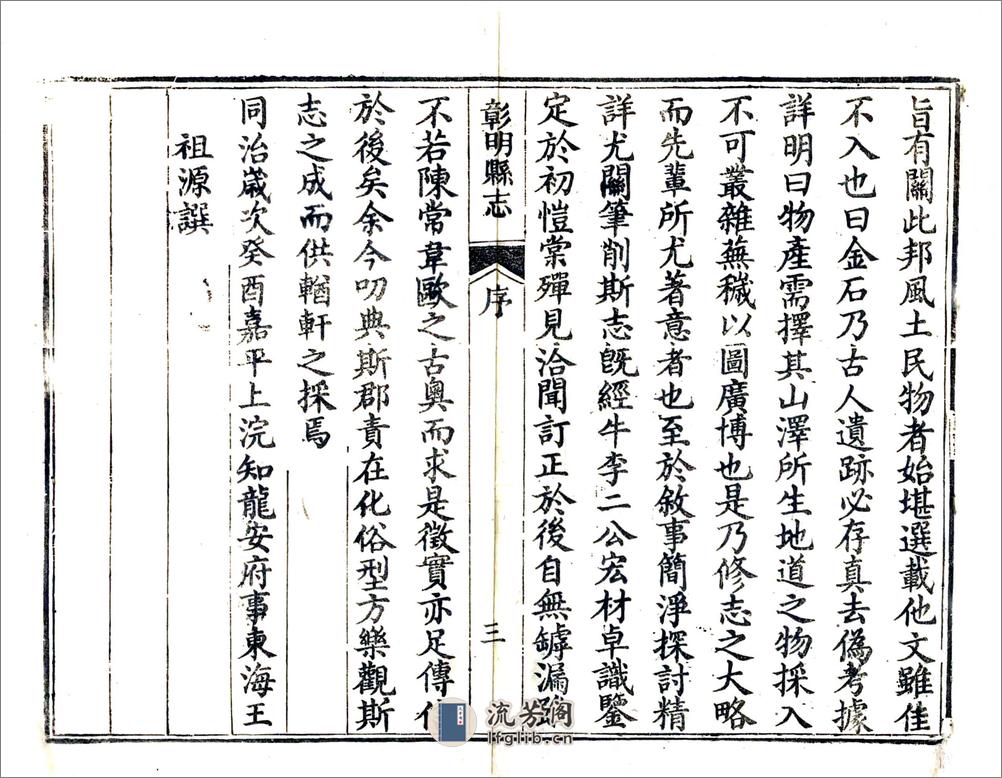 旨有關此邦風土民物者始堪選載他文雖佳
不入也曰金石乃古人遺跡必存真去偽考據
詳明曰物產需擇其山澤所生地道之物採入
不可叢雜蕪穢以圖廣博也是乃修志之大略
而先輩所尤著意者也至於敘事簡淨探討精
詳尤關筆削斯志旣經牛李二公宏材卓識鑒
定於初愷棠殫見洽聞訂正於後自無罅漏雖
彰明縣志
序
三
不若陳常韋歐之古奧而求是徵實亦足傳
於後矣余今叨典斯郡責在化俗型方樂觀斯
志之成而供輶軒之採焉
同治歲次癸酉嘉平上浣知龍安府事東海王
祖源譔
流芳阁
lfglib.cn